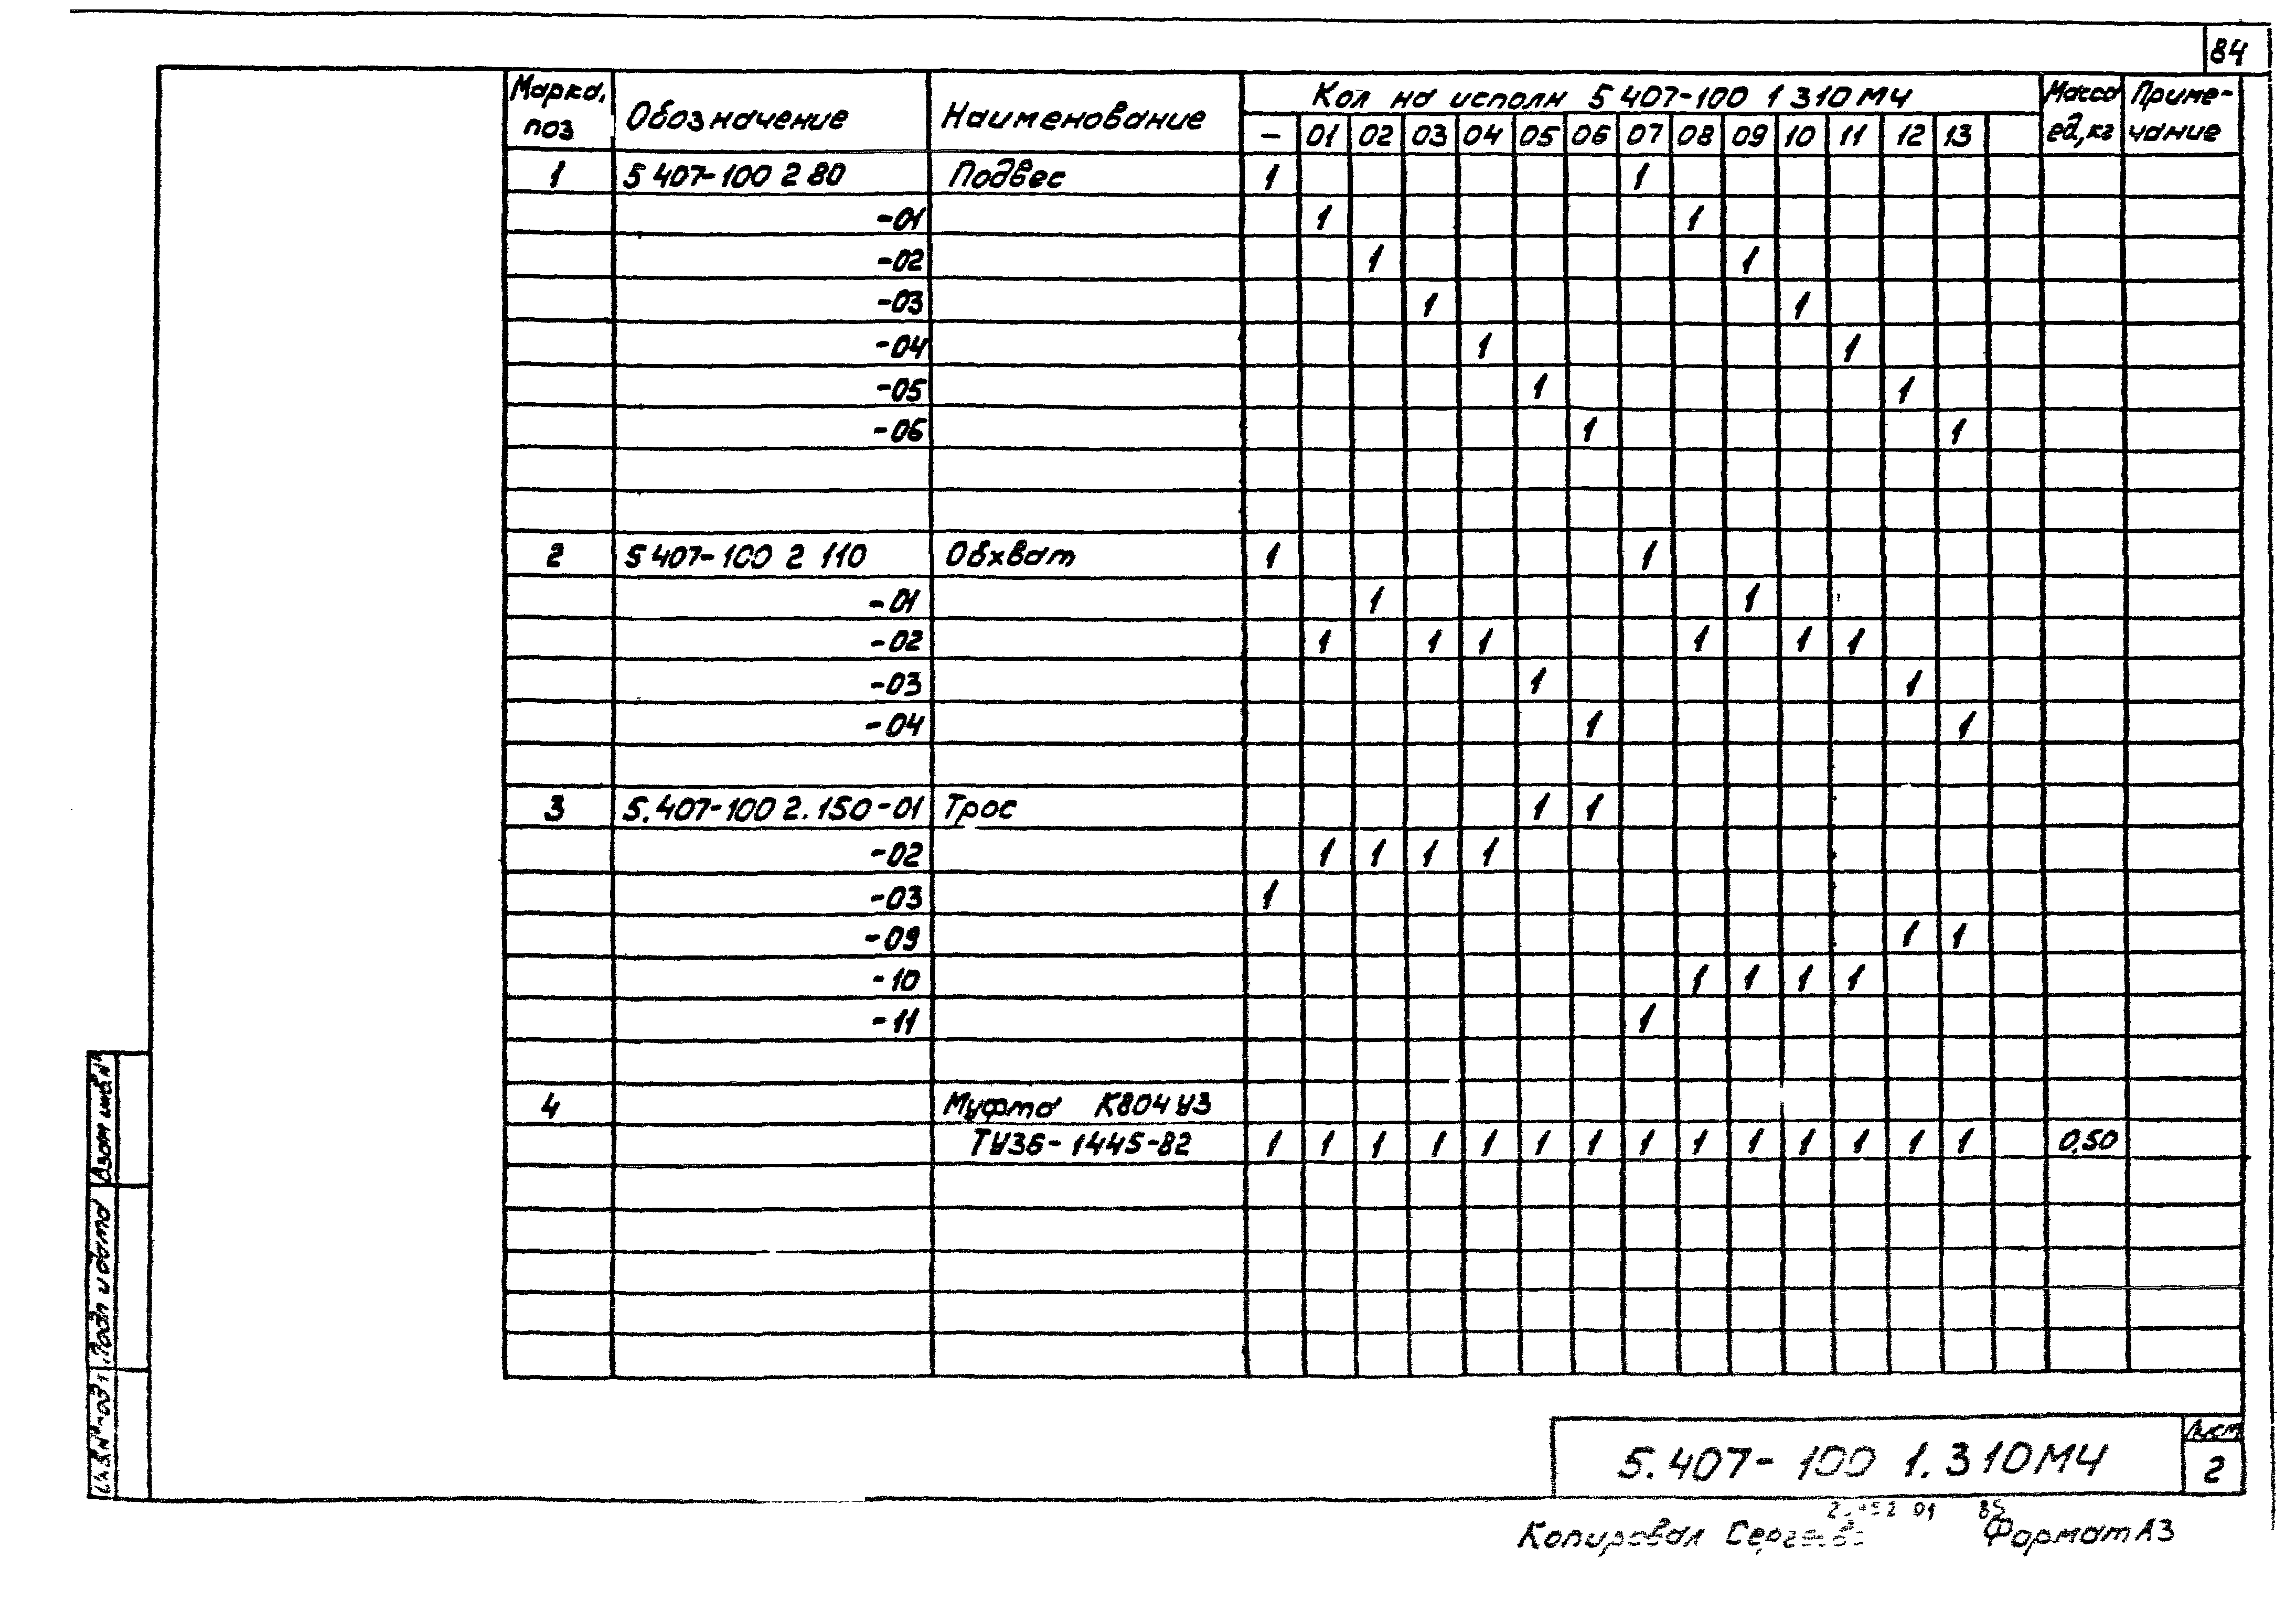 84
Марка, поз Обозначение Наименование Кол на исполн 5 407-100 1 310МЧ Масса ед,кг Приме-чание
– 01 02 03 04 05 06 07 08 09 10 11 12 13
1 5 407-100 2 80 Подвес 1 1
-01 1 1
-02 1 1
-03 1 1
-04 1 1
-05 1 1
-06 1 1
2 5 407-100 2 110 Обхват 1 1
-01 1 1
-02 1 1 1 1 1 1
-03 1 1
-04 1 1
3 5.407-100 2.150-01 Трос 1 1
-02 1 1 1 1
-03 1
-09 1 1
-10 1 1 1 1
-11 1
4 Муфта К804У3
ТУ36-1445-82 1 1 1 1 1 1 1 1 1 1 1 1 1 1 0,50
Взам инв.№
Подп и дата
5.407-100 1.310МЧ
Лист
2
Копировал
Формат А3